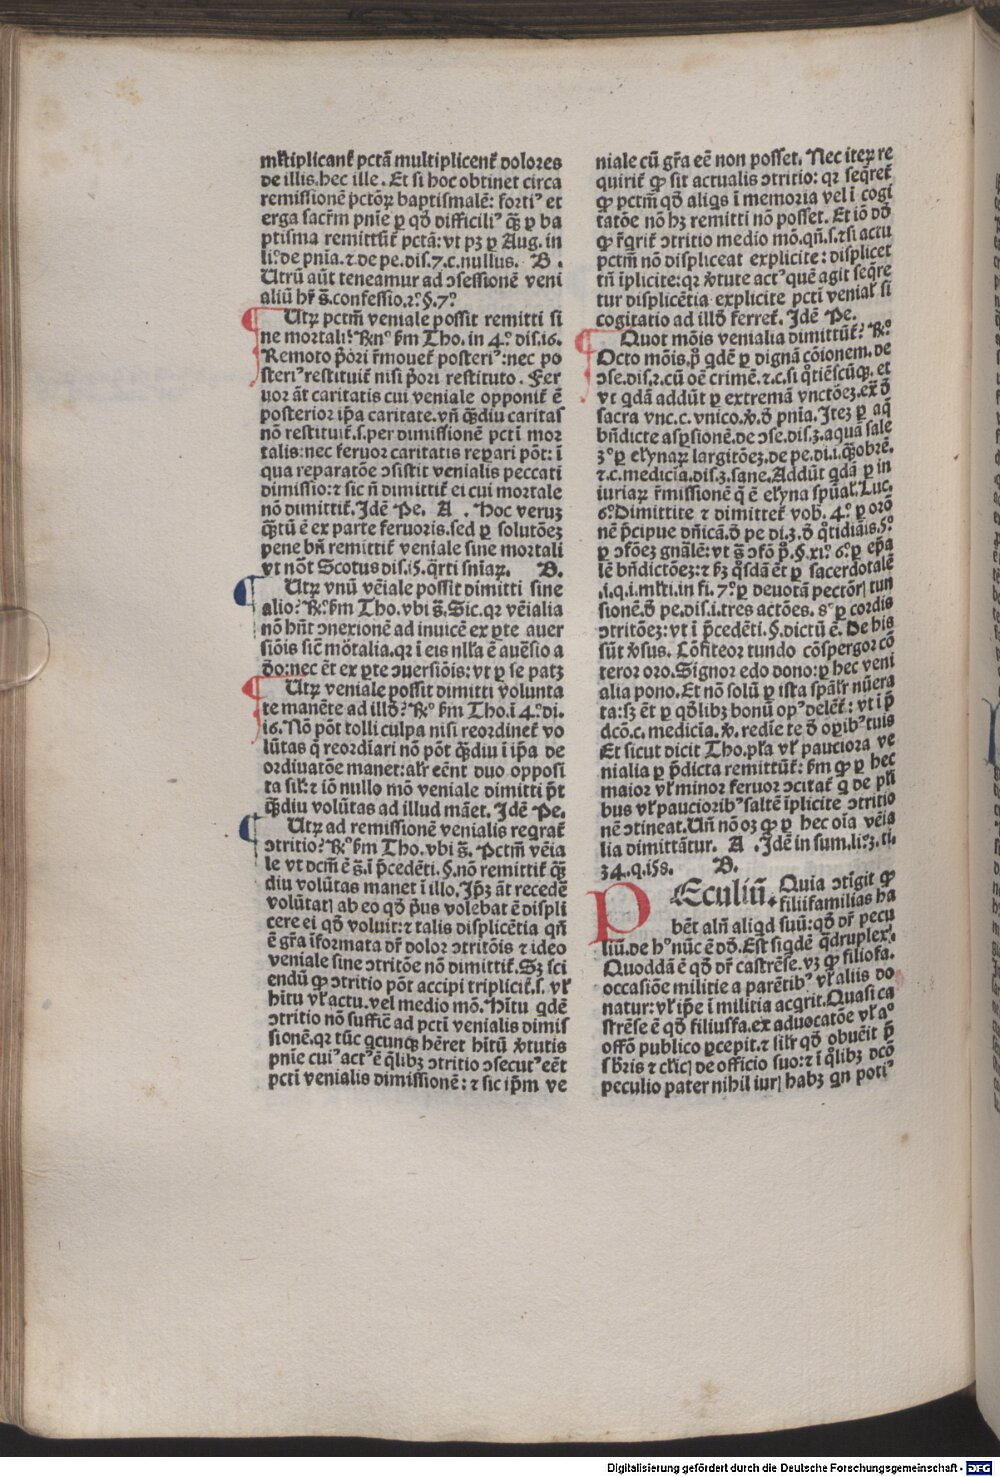 mĺtiplicant̃ pctã multiplicent̃ dolores
de illis.hec ille. Et si hoc obtinet circa
remissionẽ pctõꝝ baptismalẽ: forti⁹ et
erga sacr̃m pnie ꝑ qđ difficili⁹ q̃ꝫ ꝑ ba
ptisma remittũt̃ pctã: vt pꝫ ꝑ Aug. in
li.º de pnĩa. ⁊ de pe. dis. 7. c. nullus. B.
Utrũ aũt teneamur ad ɔfessionẽ veni
aliũ hr̃ s̃. confessio. 2.º §. 7.º
Utꝝ pctm̃ veniale possit remitti si
ne mortali? R̃nº ẜm Tho. in 4.º dis. 16.
Remoto p̃ori r̃mouet̃ posteri⁹: nec po
steri⁹ restituit̃ nisi p̃ori restituto. Fer
uor ãt caritatis cui veniale opponit̃ ẽ
posterior ip̃a caritate. vñ q̃ꝫdiu caritas
nõ restituit̃. s. per dimissionẽ pcti mor
talis: nec feruor caritatis reparĩ põt: ĩ
qua reparatõe ɔsistit venialis peccati
dimissio: ⁊ sic ñ dimittit̃ ei cui mortale
nõ dimittit̃. Idẽ Pe. A. Hoc veruꝫ
q̃ꝫtũ ẽ ex parte feruoris. sed ꝑ solutõeꝫ
pene bñ remittit̃ veniale sine mortali
vt nõt Scotus dis. 15. q̃rti snĩaꝝ. B.
Utꝝ vnũ vẽiale possit dimitti sine
alio? R.º ẜm Tho. vbi s̃. Sic. qꝛ vẽialia
nõ hñt ɔnexionẽ ad inuicẽ ex ꝑte auer
siõis sicẽ mõtalia. qꝛ ĩ eis nĺla ẽ auẽsio a
đo: nec ẽt ex ꝑte ɔuersiõis: vt ꝑ se patꝫ
Utꝝ veniale possit dimitti volunta
te manẽte ad illđ? R.º ẜm Tho. ĩ 4.º di.
16. Nõ põt tolli culpa nisi reordinet̃ vo
lũtas q̃ reordĩari nõ põt q̃ꝫdiu ĩ ip̃a de
ordiuatõe manet: aĺr eẽnt duo opposi
ta siĺ: ⁊ iõ nullo mõ veniale dimitti p̃t
q̃ꝫdiu volũtas ad illud mãet. Idẽ Pe.
Utꝝ ad remissionẽ venialis reqrat̃
ɔtritio? R.º ẜm Tho. vbi s̃. Pctm̃ vẽia
le vt dcm̃ ẽ s̃. ĩ p̃cedẽti. §. nõ remittit̃ q̃ꝫ
diu volũtas manet ĩ illo. Ip̃ꝫ ãt recedẽ
volũtatꝭ ab eo qđ p̃us volebat ẽ displi
cere ei qđ voluit: ⁊ talis displicẽtia qñ
ẽ gr̃a ĩformata dr̃ dolor ɔtritõis ⁊ ideo
veniale sine ɔtritõe nõ dimittit̃. Sꝫ sci
endũ ꝙ ɔtritio põt accipi triplicit̃. s. vĺ
hĩtu vĺ actu. vel medio mõ. Hĩtu qdẽ
ɔtritio nõ suffič ad pcti venialis dimis
sionẽ. qꝛ tũc qcunqꝫ hẽret hĩtũ ꝟtutis
pnie cui⁹ act⁹ ẽ q̃libꝫ ɔtritio ɔsecut⁹ eẽt
pcti venialis dimissionẽ: ⁊ sic ip̃m ve
niale cũ gr̃a eẽ non posset. Nec iteꝝ re
quirit̃ ꝙ sit actualis ɔtritio: qꝛ seq̃ret̃
ꝙ pctm̃ qđ aliqs ĩ memoria vel ĩ cogi
tatõe nõ hꝫ remitti nõ posset. Et iõ đđ
ꝙ r̃qrit̃ ɔtritio medio mõ. qñ. s. ⁊ si actu
pctm̃ nõ displiceat explicite: displicet
tñ ĩplicite: qꝛ ꝟtute act⁹ quẽ agit seq̃re
tur displicẽtia explicite pcti veniaĺ si
cogitatio ad illđ ferret̃. Idẽ Pe.
Quot mõis venialia dimittũt̃? R.º
Octo mõis. p.º qdẽ ꝑ dignã cõionem. de
ɔse. dis. 2. cũ oẽ crimẽ. ⁊ c. si q̃tiẽscũqꝫ. et
vt qdã addũt ꝑ extremã vnctõeꝫ. ex̃ đ
sacra vnc. c. vnico. ꝟ. đ pnĩa. Iteꝫ ꝑ aq̃
bñdicte aspsionẽ. de ɔse. dis. 3. aquã sale
3.º ꝑ eĺynaꝝ largitõeꝫ. de pe. di. i. q̃ꝫobrẽ.
⁊ c. medicĩa. dis. 3. sane. Addũt qdã ꝑ in
iuriaꝝ r̃missionẽ q̃ ẽ eĺyna spũaĺ. Luc.
6.º Dimittite ⁊ dimittet̃ vob. 4.º ꝑ orõ
nẽ p̃cipue dñicã. đ pe di. 3. đ q̃tidiãis. 5.º
ꝑ ɔfõeꝫ gñalẽ: vt s̃ ɔfõ p.º §. xi.º 6.º ꝑ ep̃a
lẽ bñdictõeꝫ: ⁊ ẜꝫ q̃sdã ẽt ꝑ sacerdotalẽ
.i. q. i. mĺti. in fi. 7.º ꝑ deuotã pectorꝭ tun
sionẽ. đ pe. dis. i. tres actões. 8.º ꝑ cordis
ɔtritõeꝫ: vt ĩ p̃cedẽti. §. dictũ ẽ. De his
sũt ꝟsus. Cõfiteor tundo cõspergor cõ
teror oro. Signor edo dono: ꝑ hec veni
alia pono. Et nõ solũ ꝑ ista spãĺr nũera
ta: sꝫ ẽt ꝑ qđlibꝫ bonũ op⁹ delẽt̃: vt ĩ p̃
dcõ. c. medicĩa. ꝟ. redĩe te đ oꝑib⁹ tuis
Et sicut dicit Tho. pĺa vĺ pauciora ve
nialia ꝑ p̃dicta remittũt̃: ẜm ꝙ ꝑ hec
maior vĺ minor feruor ɔcitat̃ q de pĺi
bus vĺ pauciorib⁹ saltẽ ĩplicite ɔtritio
nẽ ɔtineat. Uñ nõ oꝫ ꝙ ꝑ hec oĩa vẽia
lia dimittãtur. A. Idẽ in sum. li.º 3. ti.
34. q. 158. B.
PEculiũ. Quia ɔtĩgit ꝙ
filiifamilias ha
bẽt alñ aliqd suũ: qđ dr̃ pecu
liũ. de h.º nũc ẽ đđ. Est siqdẽ q̃druplex.
Quoddã ẽ qđ dr̃ castrẽse. vꝫ ꝙ filiofa.
occasiõe militie a parẽtib⁹ vĺ aliis do
natur: vĺ ip̃e ĩ militia acqrit. Quasi ca
strẽse ẽ qđ filiusfa. ex aduocatõe vĺ a.º
offõ publico ꝑcepit. ⁊ siĺr qđ obuẽit p̃
sb̃ris ⁊ cĺicꝭ de officio suo: ⁊ ĩ q̃libꝫ dcõ
peculio pater nihil iurꝭ habꝫ qn poti⁹
Digitalisierung gefördert durch die Deutsche Forschungsgemeinschaft - DFG